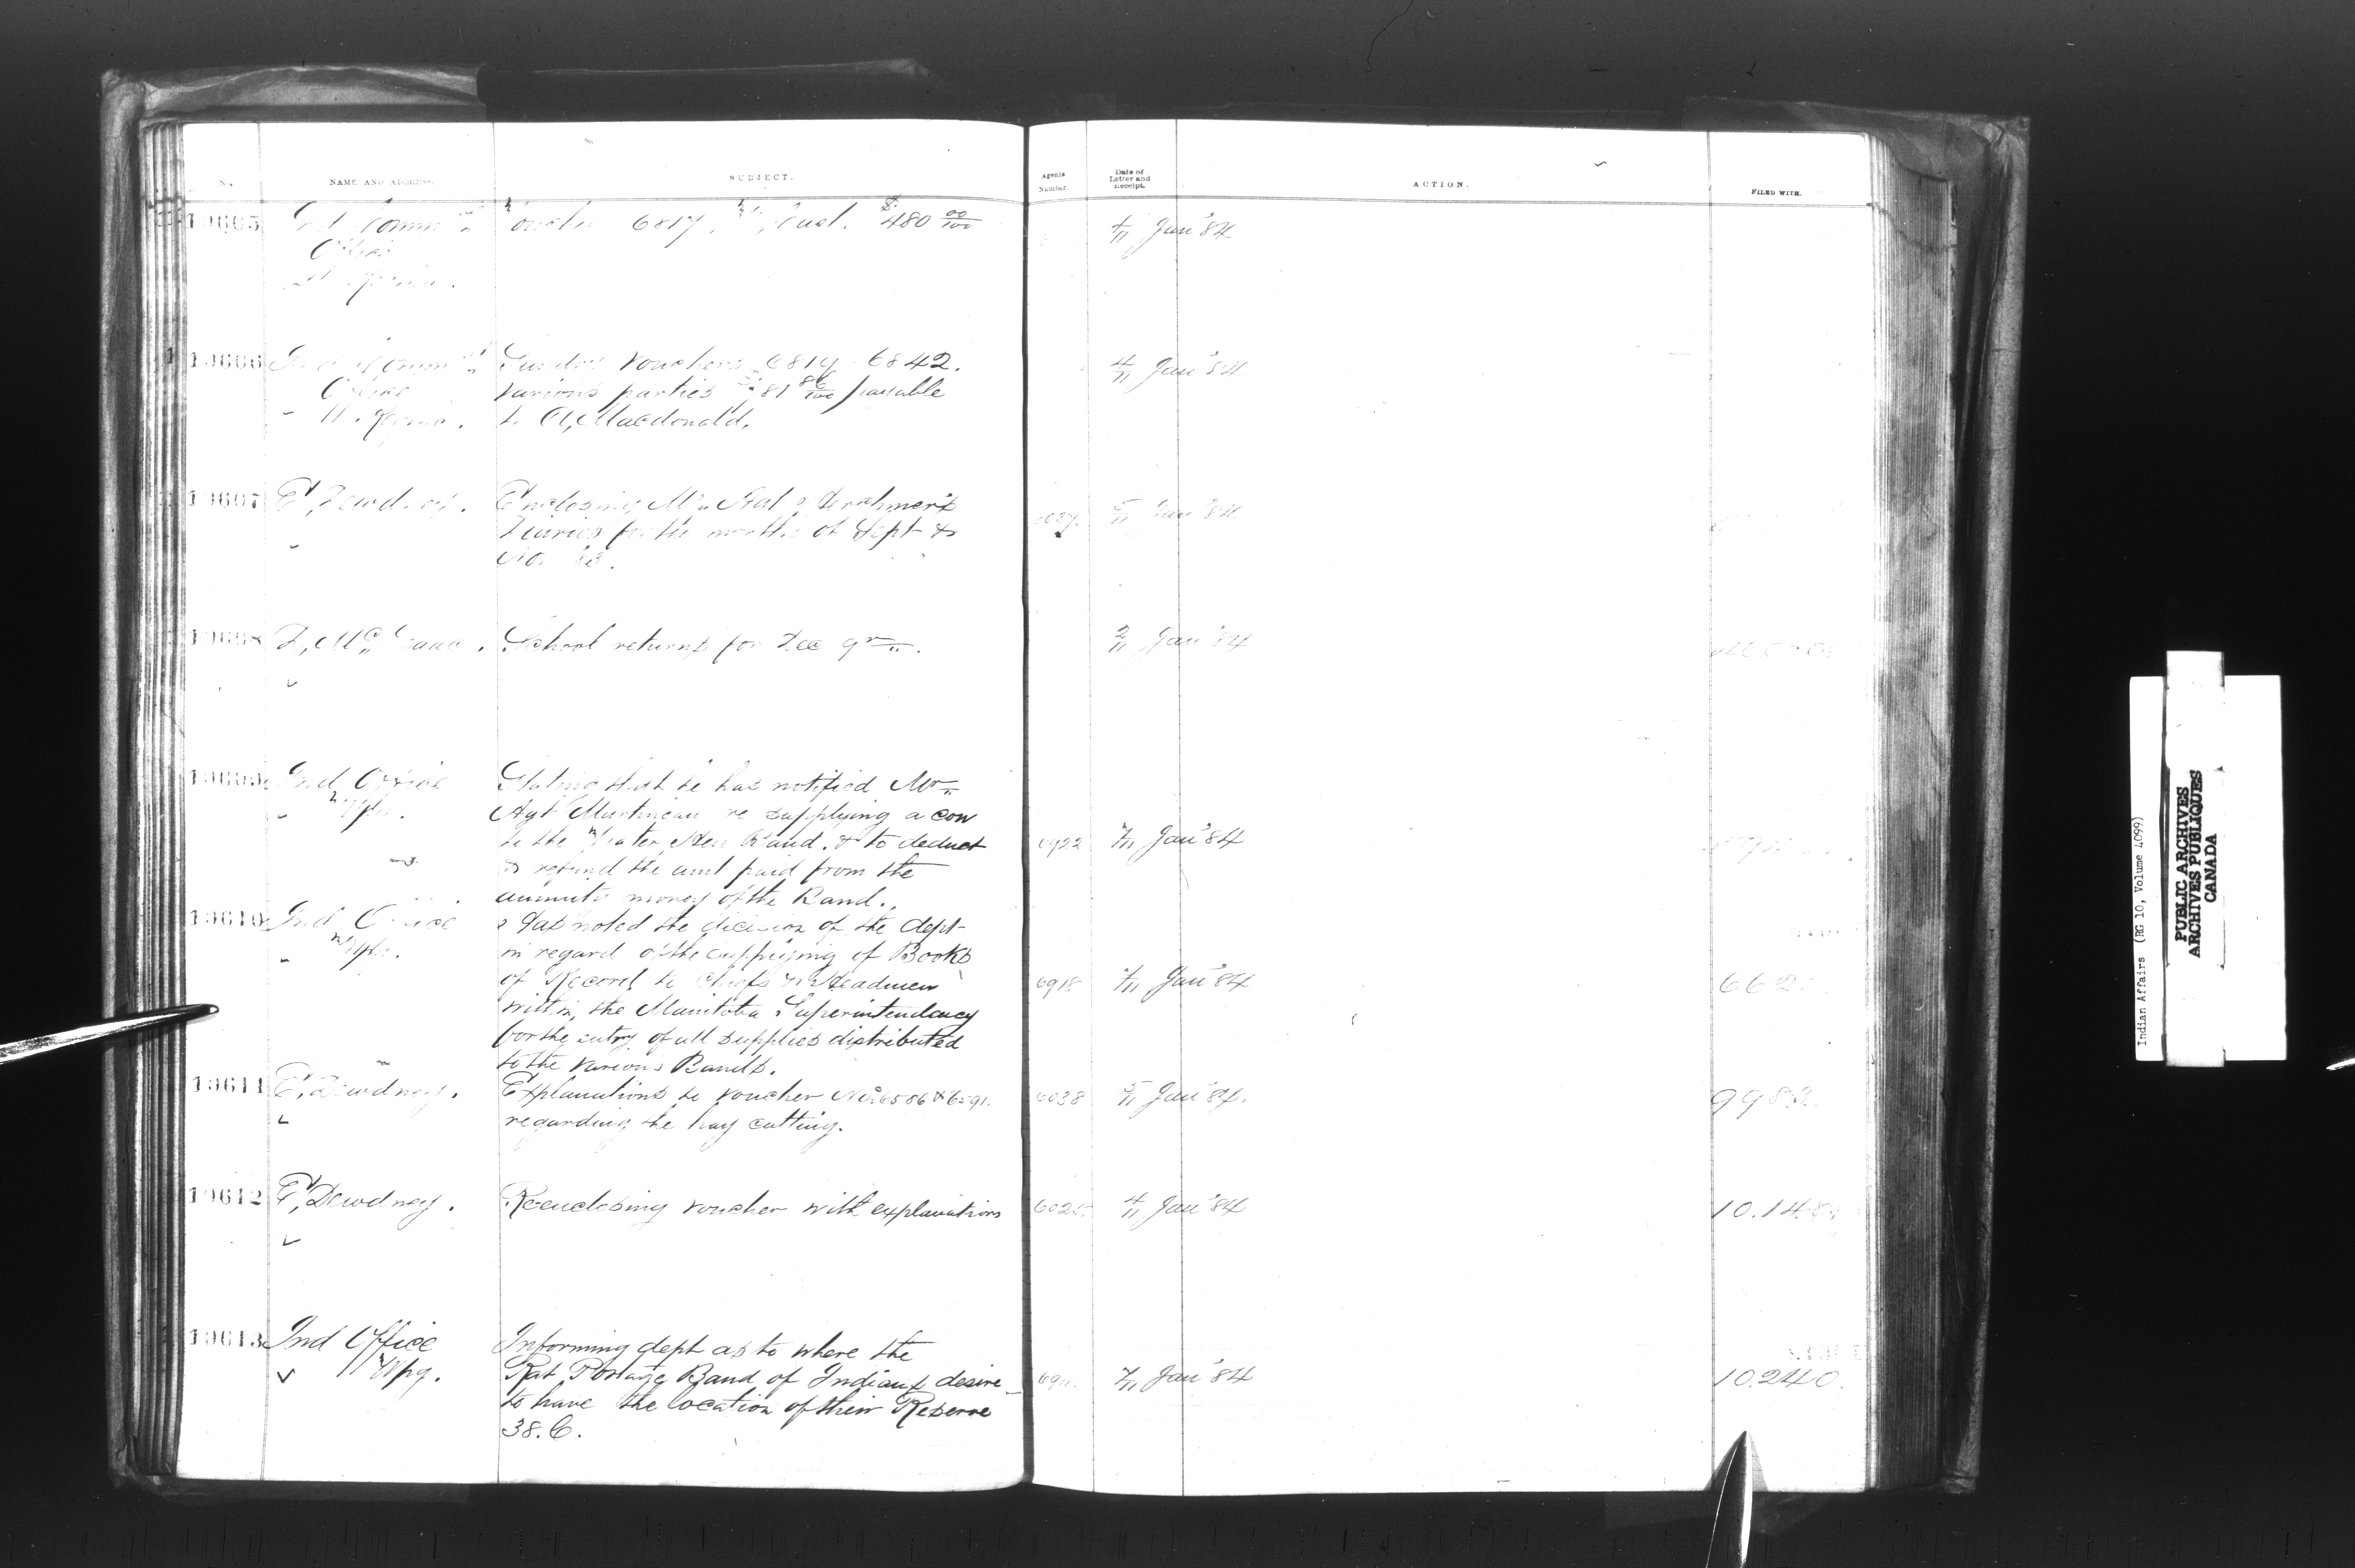 No. NAME AND ADDRESS. SUBJECT.
Agents Number. Date of Letter and Receipt. ACTION. FILED WITH.
19605 Ind Comm Voucher 6817. Fuel. $480 00/100 4/11 Jan '84
Office
19606 Ind Comm Sundry Vouchers 6819 - 6842. 4/11 Jan '84
Office various parties 81 86/100 payable
to A, Macdonald.
19607 E, Dewdney. Enclosing 5/11 Jan '84
Diaries for the months of Sept &
No. 83.
19608 School returns for Dec qr. 2/11 Jan '84
19609 Ind Office Stating that he has notified Mr
Wpg. Agt Martineau re supplying a cow
to the Water Hen Band. & to deduct 6922 7/11 Jan '84
& refund the amt paid from the
annuity money of the Band.
19610 Ind Office Has noted the decision of the dept
Wpg. in regard of the supplying of Books
of Record to Chiefs & Headmen 6918 7/11 Jan '84
within the Manitoba Superintendency
for the entry of all supplies distributed
to the various Bands.
19611 E, Dewdney. Explanations to voucher Nos 6586 & 6591. 6038 5/11 Jan '84.
regarding the hay cutting.
19612 E, Dewdney. Reenclosing voucher with explanations 4/11 Jan '84
19613 Ind Office Informing dept as to where the
Wpg. Rat Portage Band of Indians desire 7/11 Jan '84 10.240.
to have the location of their Reserve
38. C.
Indian Affairs (RG 10, Volume 4099)
PUBLIC ARCHIVES
ARCHIVES PUBLIQUES
CANADA